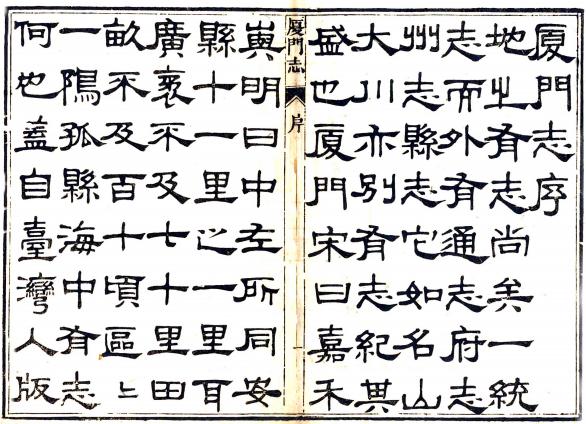 厦門志序
地之有志尚矣一統
志而外有通志府志
州志縣志它如名山
大川亦別有志紀其
盛也厦門宋曰嘉禾
厦門志
序
一
嶼明曰中左所同安
縣十一里之一里耳
廣袤不及七十里田
畝不及百十頃區〻
一隅孤縣海中有志
何也蓋自臺灣入版